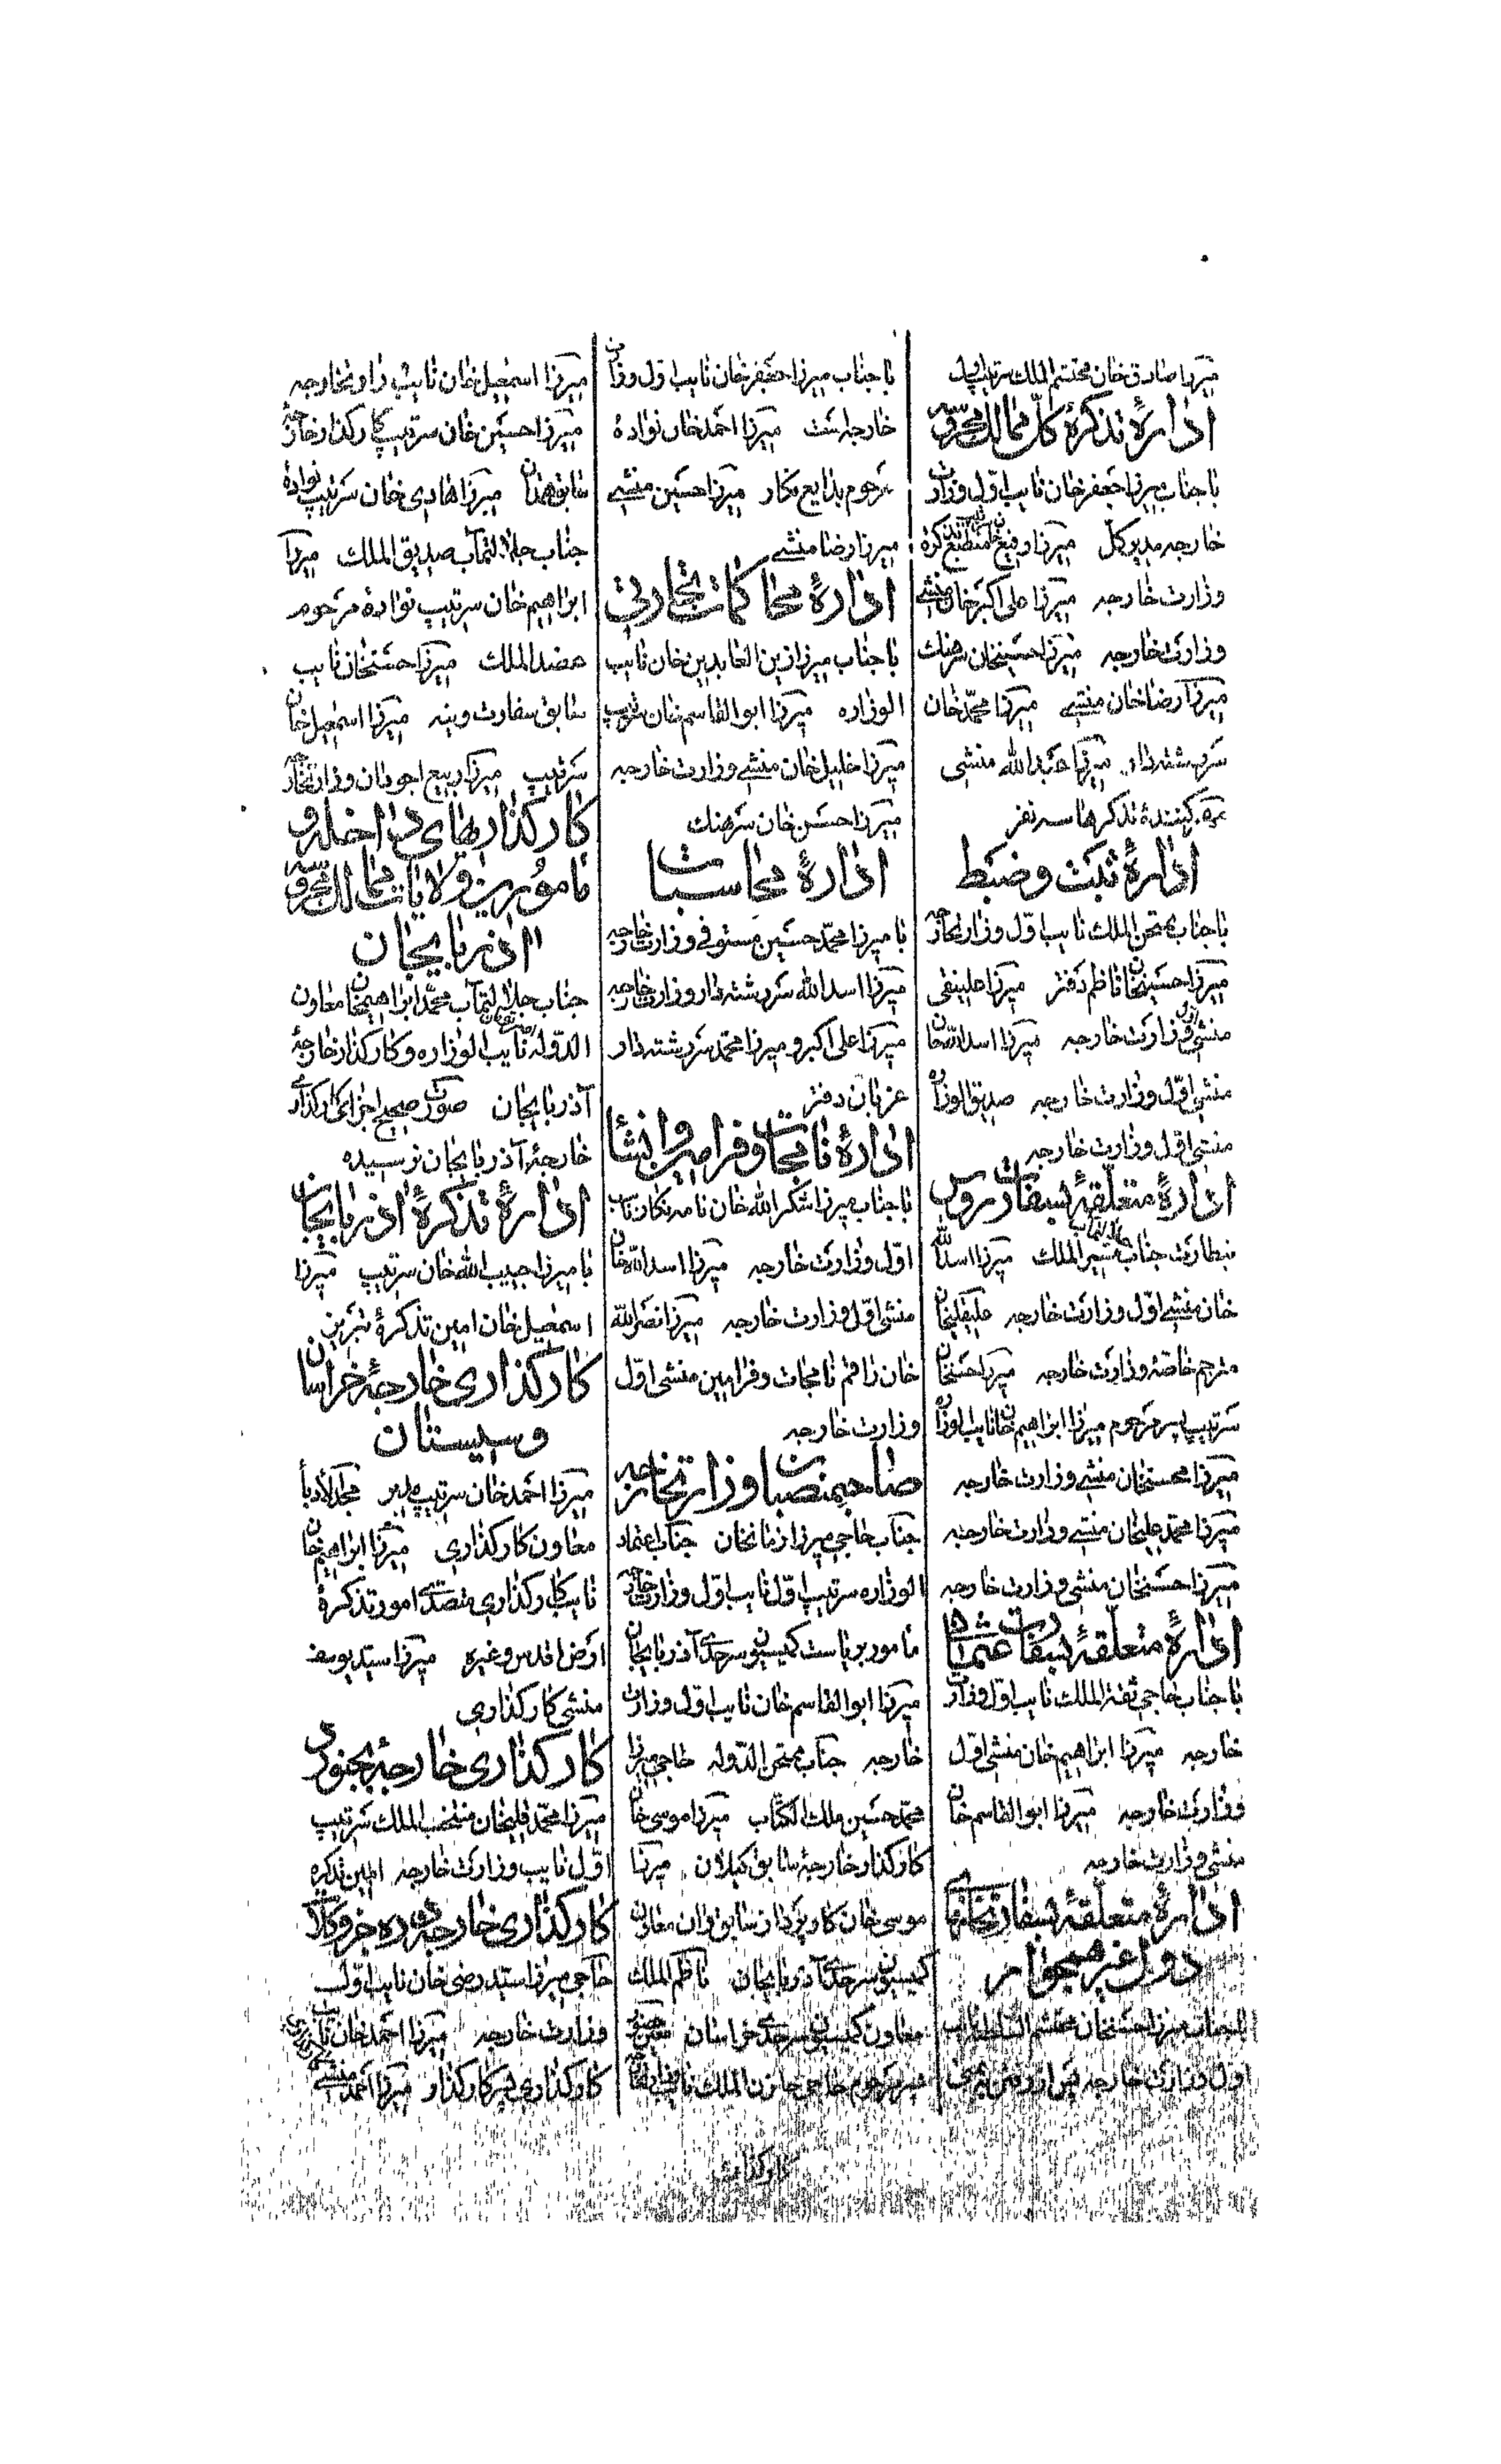 میرزا صادق خان محتشم الملک سرتیپ اول
ادارهٔ تذکرهٔ کل ممالک محروسه
با جناب میرزا جعفر خان نایب اول وزارت
خارجه مدیر کل میرزا رفیع خان تذکره
وزارت خارجه میرزا علی اکبر خان منشی
وزارت خارجه میرزا حسینخان سرهنک
میرزا رضا خان منشی میرزا محمد خان
سررشته دار میرزا عبدالله منشی
کنندهٔ تذکرها سه نفر
ادارهٔ ثبت و ضبط
با جناب ممتحن الملک نایب اول وزارتخارجه
میرزا حسینخان ناظم دفتر میرزا علینقی
منشی اول وزارت خارجه میرزا اسدالله خان
منشی اول وزارت خارجه صدیق الوزاره
منشی اول وزارت خارجه
ادارهٔ متعلقهٔ بسفارت روس
بنظارت جناب جلالتمآب مشیر الملک میرزا اسدالله
خان منشی اول وزارت خارجه علیقلیخان
مترجم خاصهٔ وزارت خارجه میرزا حسنخان
سرتیپ پسر مرحوم میرزا ابراهیم خان نایب الوزاره
میرزا محسنخان منشی وزارت خارجه
میرزا محمد علیخان منشی وزارت خارجه
میرزا حسنخان منشی وزارت خارجه
ادارهٔ متعلقهٔ بسفارت عثمانی
با جناب حاجی ثقة الملک نایب اول وزارت
خارجه میرزا ابراهیم خان منشی اول
وزارت خارجه میرزا ابوالقاسم خان
منشی وزارت خارجه
ادارهٔ متعلقهٔ بسفارتخانهای
دول غیر همجوار
با جناب میرزا حسنخان محتشم السلطنه نایب
اول وزارت خارجه
با جناب میرزا جعفر خان نایب اول وزارت
خارجه است میرزا احمد خان نوادهٔ
مرحوم بدایع نکار میرزا حسین منشی
میرزا رضا منشی
ادارهٔ محاکمات تجارتی
با جناب میرزا زین العابدین خان نایب
الوزاره میرزا ابوالقاسم خان سرتیپ
میرزا خلیل خان منشی وزارت خارجه
میرزا حسن خان سرهنک
ادارهٔ محاسبات
با میرزا محمد حسین مستوفی وزارت خارجه
میرزا اسدالله سررشته دار وزارت خارجه
میرزا علی اکبر و میرزا محمد سررشته دار
عزبان دفتر
ادارهٔ نامجات و فرامین و انشا
با جناب میرزا شکرالله خان نامه نکار نایب
اول وزارت خارجه میرزا اسدالله خان
منشی اول وزارت خارجه میرزا نصرالله
خان راقم نامجات و فرامین منشی اول
وزارت خارجه
صاحبمنصبان وزارتخارجه
جناب حاجی میرزا زمانخان جناب اعتماد
الوزاره سرتیپ اول نایب اول وزارت خارجه
مامور بریاست کمیسیون سرحدی آذربایجان
میرزا ابوالقاسم خان نایب اول وزارت
خارجه جناب ممتحن الدوله حاجی میرزا
محمد حسین ملک الکتاب میرزا موسی خان
کارکذار خارجهٔ سابق کیلان میرزا
موسی خان کارپرداز سابق وان معاون
کمیسیون سرحدی آذربایجان ناظم الملک
معاون کمیسیون سرحدی خراسان معین حضور
پسر مرحوم حاجی خازن الملک نایب وزارتخارجه
میرزا اسمعیل خان نایب وزارتخارجه
میرزا حسین خان سرتیپ کارکذار خارجهٔ
سابق همدان میرزا هادی خان سرتیپ نوادهٔ
جناب جلالتمآب صدیق الملک میرزا
ابراهیم خان سرتیپ نوادهٔ مرحوم
عضد الملک میرزا حسنخان نایب
سابق سفارت وینه میرزا اسمعیل خان
سرتیپ میرزا ربیع اجودان وزارتخارجه
کارکذاریهای داخله و
مامورین ولایات ممالک محروسه
آذربایجان
جناب جلالتمآب محمد ابراهیمخان معاون
الدوله نایب الوزاره و کارکذار خارجهٔ
آذربایجان صورت صحیح اجزای کارکذاری
خارجهٔ آذربایجان نرسیده
ادارهٔ تذکرهٔ آذربایجان
با میرزا حبیب الله خان سرتیپ میرزا
اسمعیل خان امین تذکرهٔ تبریز
کارکذاری خارجهٔ خراسان
و سیستان
میرزا احمد خان سرتیپ مدیر مجدالادبا
معاون کارکذاری میرزا ابراهیم خان
نایب کارکذاری متصدی امور تذکرهٔ
ارض اقدس و غیره میرزا سید یوسف
منشی کارکذاری
کارکذاری خارجهٔ بجنورد
میرزا محمد قلیخان منتخب الملک سرتیپ
اول نایب وزارت خارجه امین تذکره
کارکذاری خارجه دره جز و کلات
حاجی میرزا سید رضی خان نایب اول
وزارت خارجه میرزا احمد خان نایب
کارکذاری پسر کارکذار میرزا احمد منشی
کارکذاری